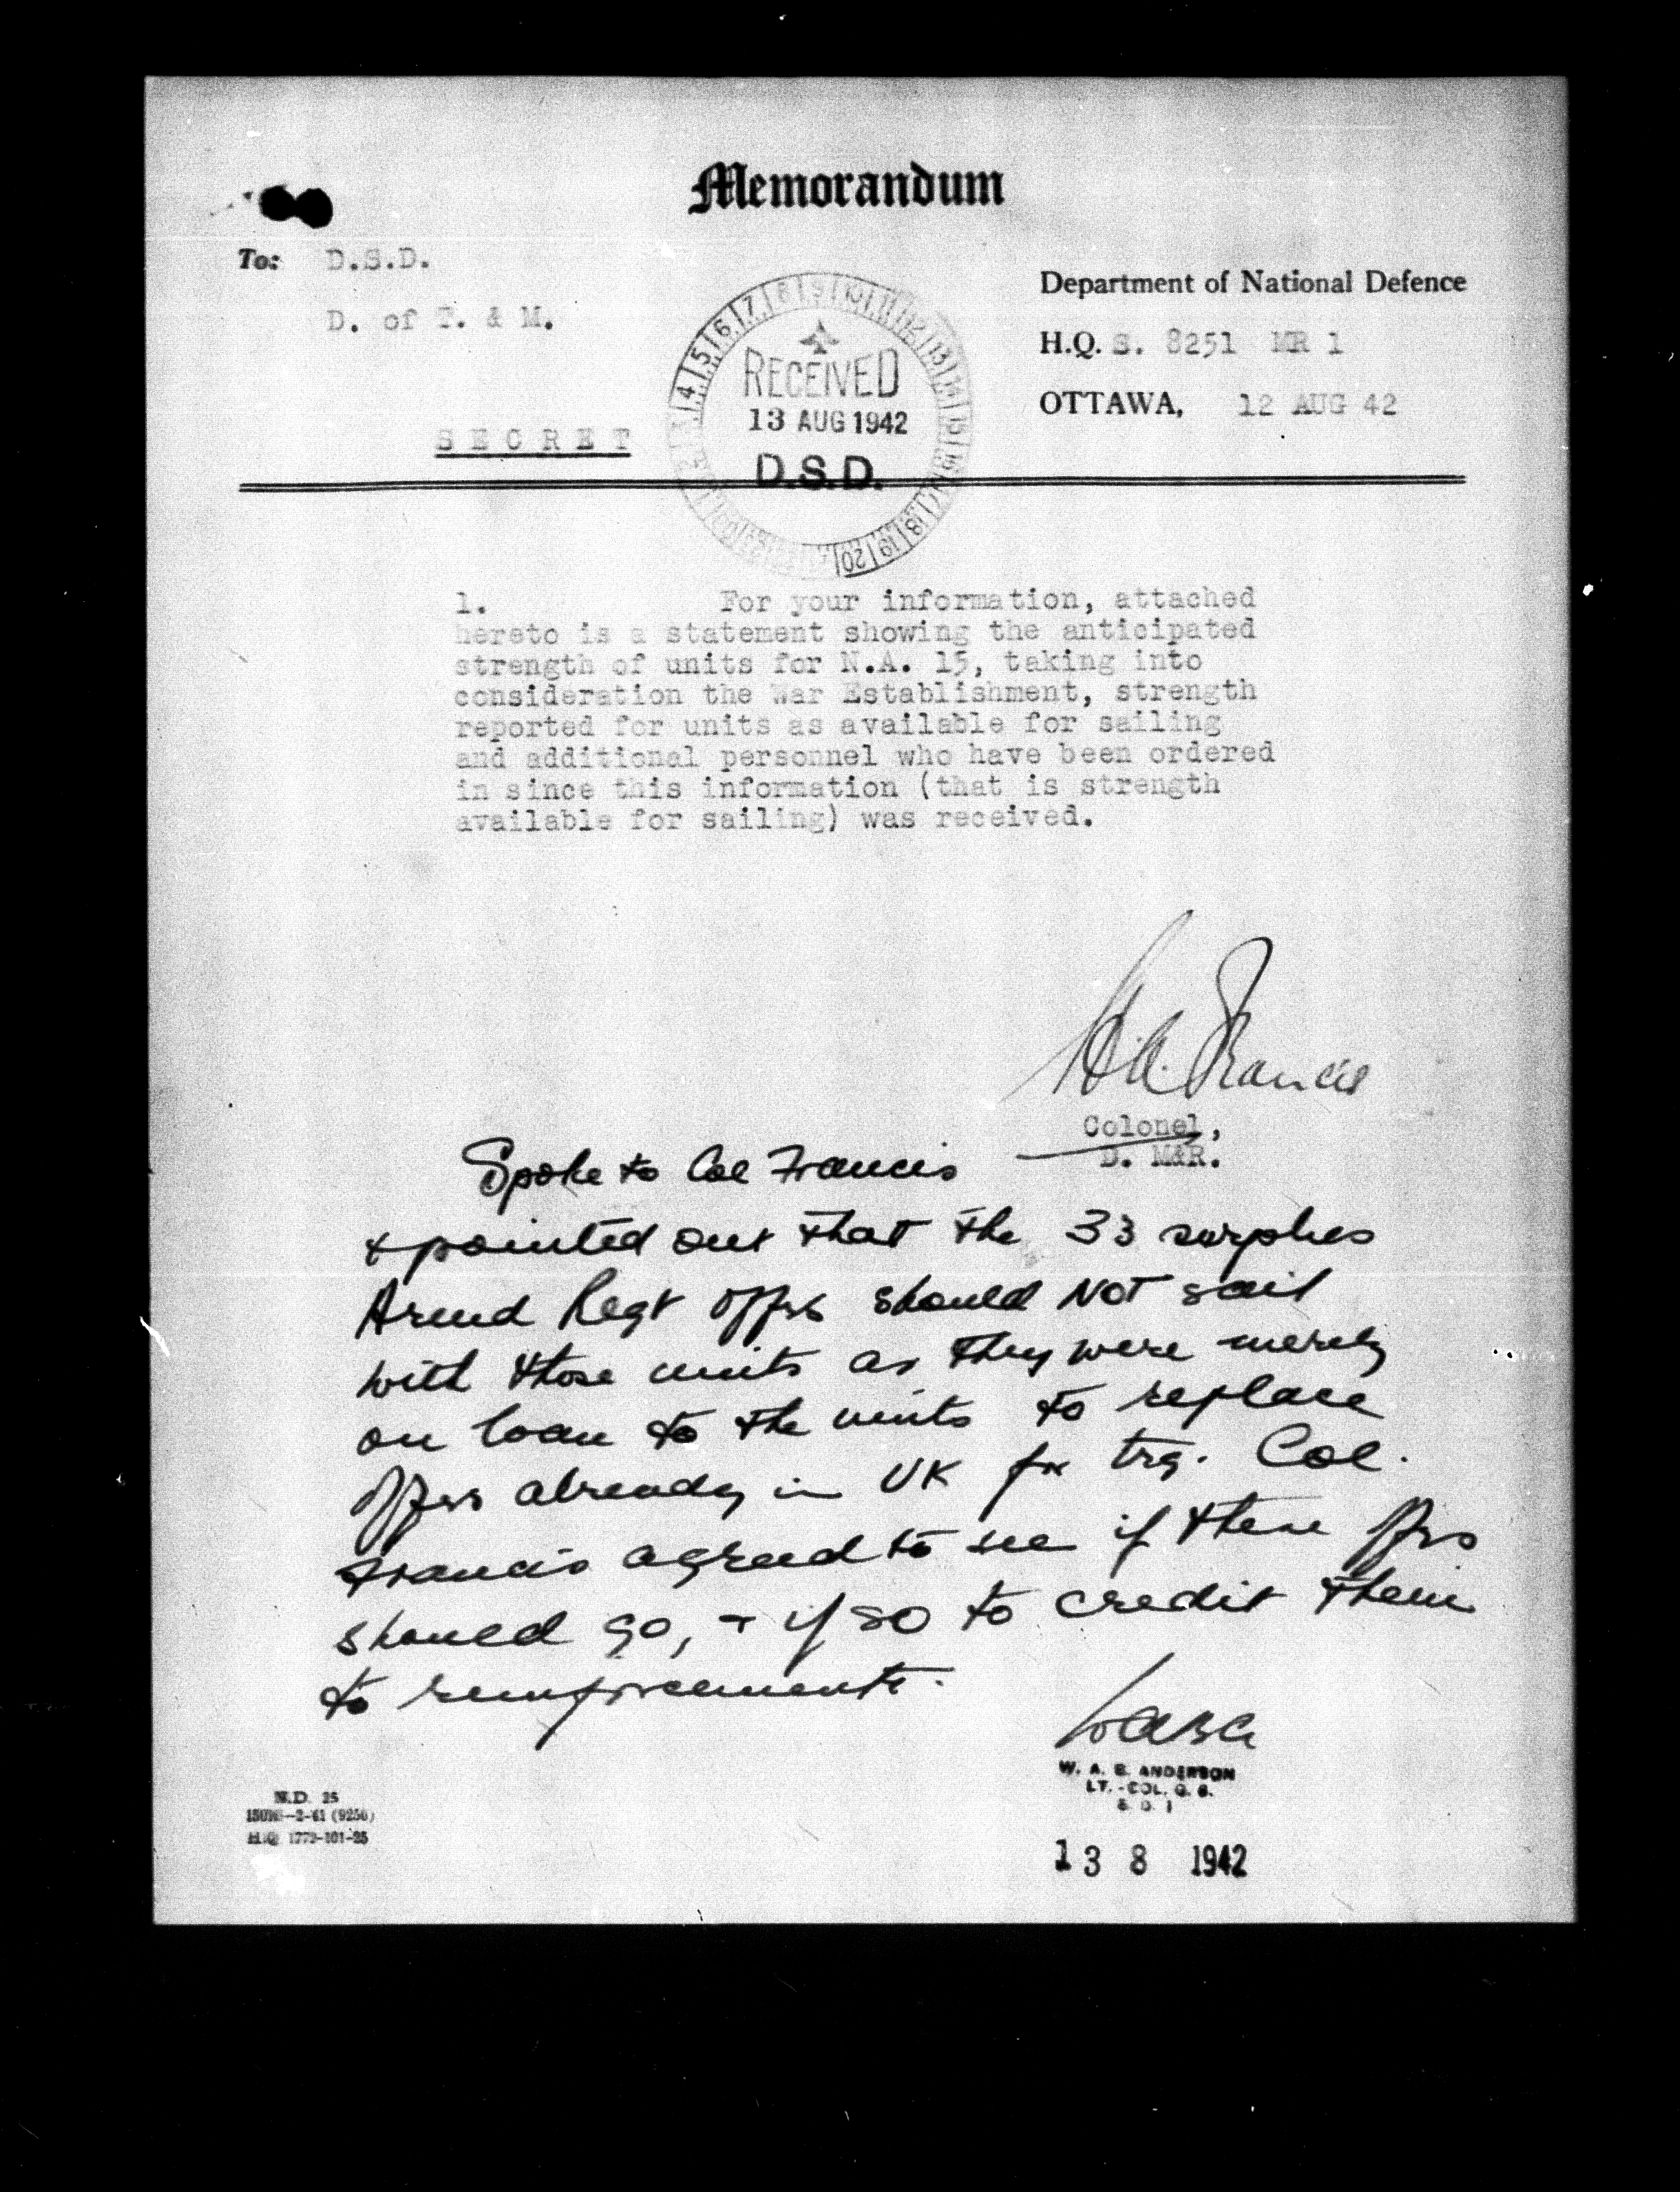 Memorandum
To: D.S.D.
D. of T. & M.
Department of National Defence
H.Q. S. 8251 MR 1
OTTAWA, 12 AUG 42
SECRET
4 5 6 7 8 9 10 11 12 13 14 15 16 17 18 19 20
RECEIVED
13 AUG 1942
D.S.D.
1. For your information, attached
hereto is a statement showing the anticipated
strength of units for N.A. 15, taking into
consideration the War Establishment, strength
reported for units as available for sailing
and additional personnel who have been ordered
in since this information (that is strength
available for sailing) was received.
Francis
Colonel,
D. M&R.
Spoke to Col Francis
& pointed out that the 33 surplus
Armd Regt offrs should NOT sail
with those units as they were merely
on loan to the units to replace
offrs already in UK for trg. Col.
Francis agreed to see if these offrs
should go, & if so to credit them
to reinforcements.
WABA
W. A. B. ANDERSON
LT.-COL. G. S.
S. D. 1
13 8 1942
N.D. 25
H.Q. 1772-101-25